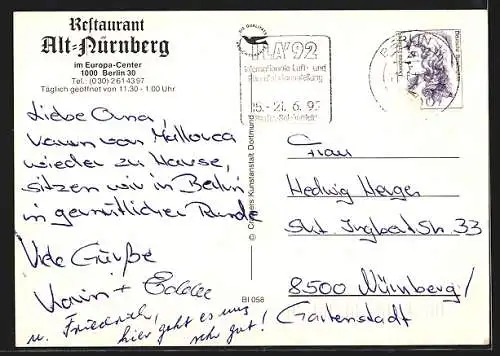 Restaurant
Alt-Nürnberg
im Europa-Center
1000 Berlin 30
Tel.: (030) 261 43 97
Täglich geöffnet von 11.30 - 1.00 Uhr
ILA'92
Internationale Luft- und
15.-21. 6. 92
BERLIN
Deutsche Bundespost
© Cramers Kunstanstalt Dortmund
BI 058
Liebe Oma,
kaum von Mallorca
wieder zu Hause,
sitzen wir in Berlin
in gemütlicher Runde
Viele Grüße
Karin + Eddie
u. Friedrich,
hier geht es uns
sehr gut!
Frau
Hedwig Herger
Skt. Ingbert Str. 33
8500 Nürnberg/
Gartenstadt